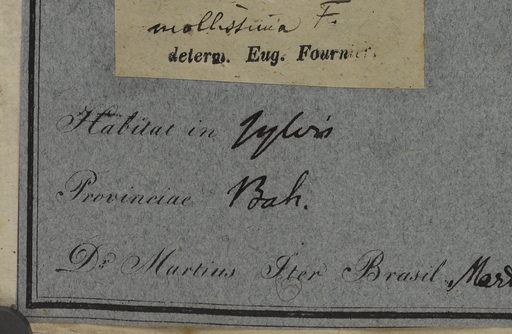 mollissima F.
determ. Eug. Fournier.
Habitat in sylvis
Provinciae Bah.
Dr. Martius Iter Brasil.